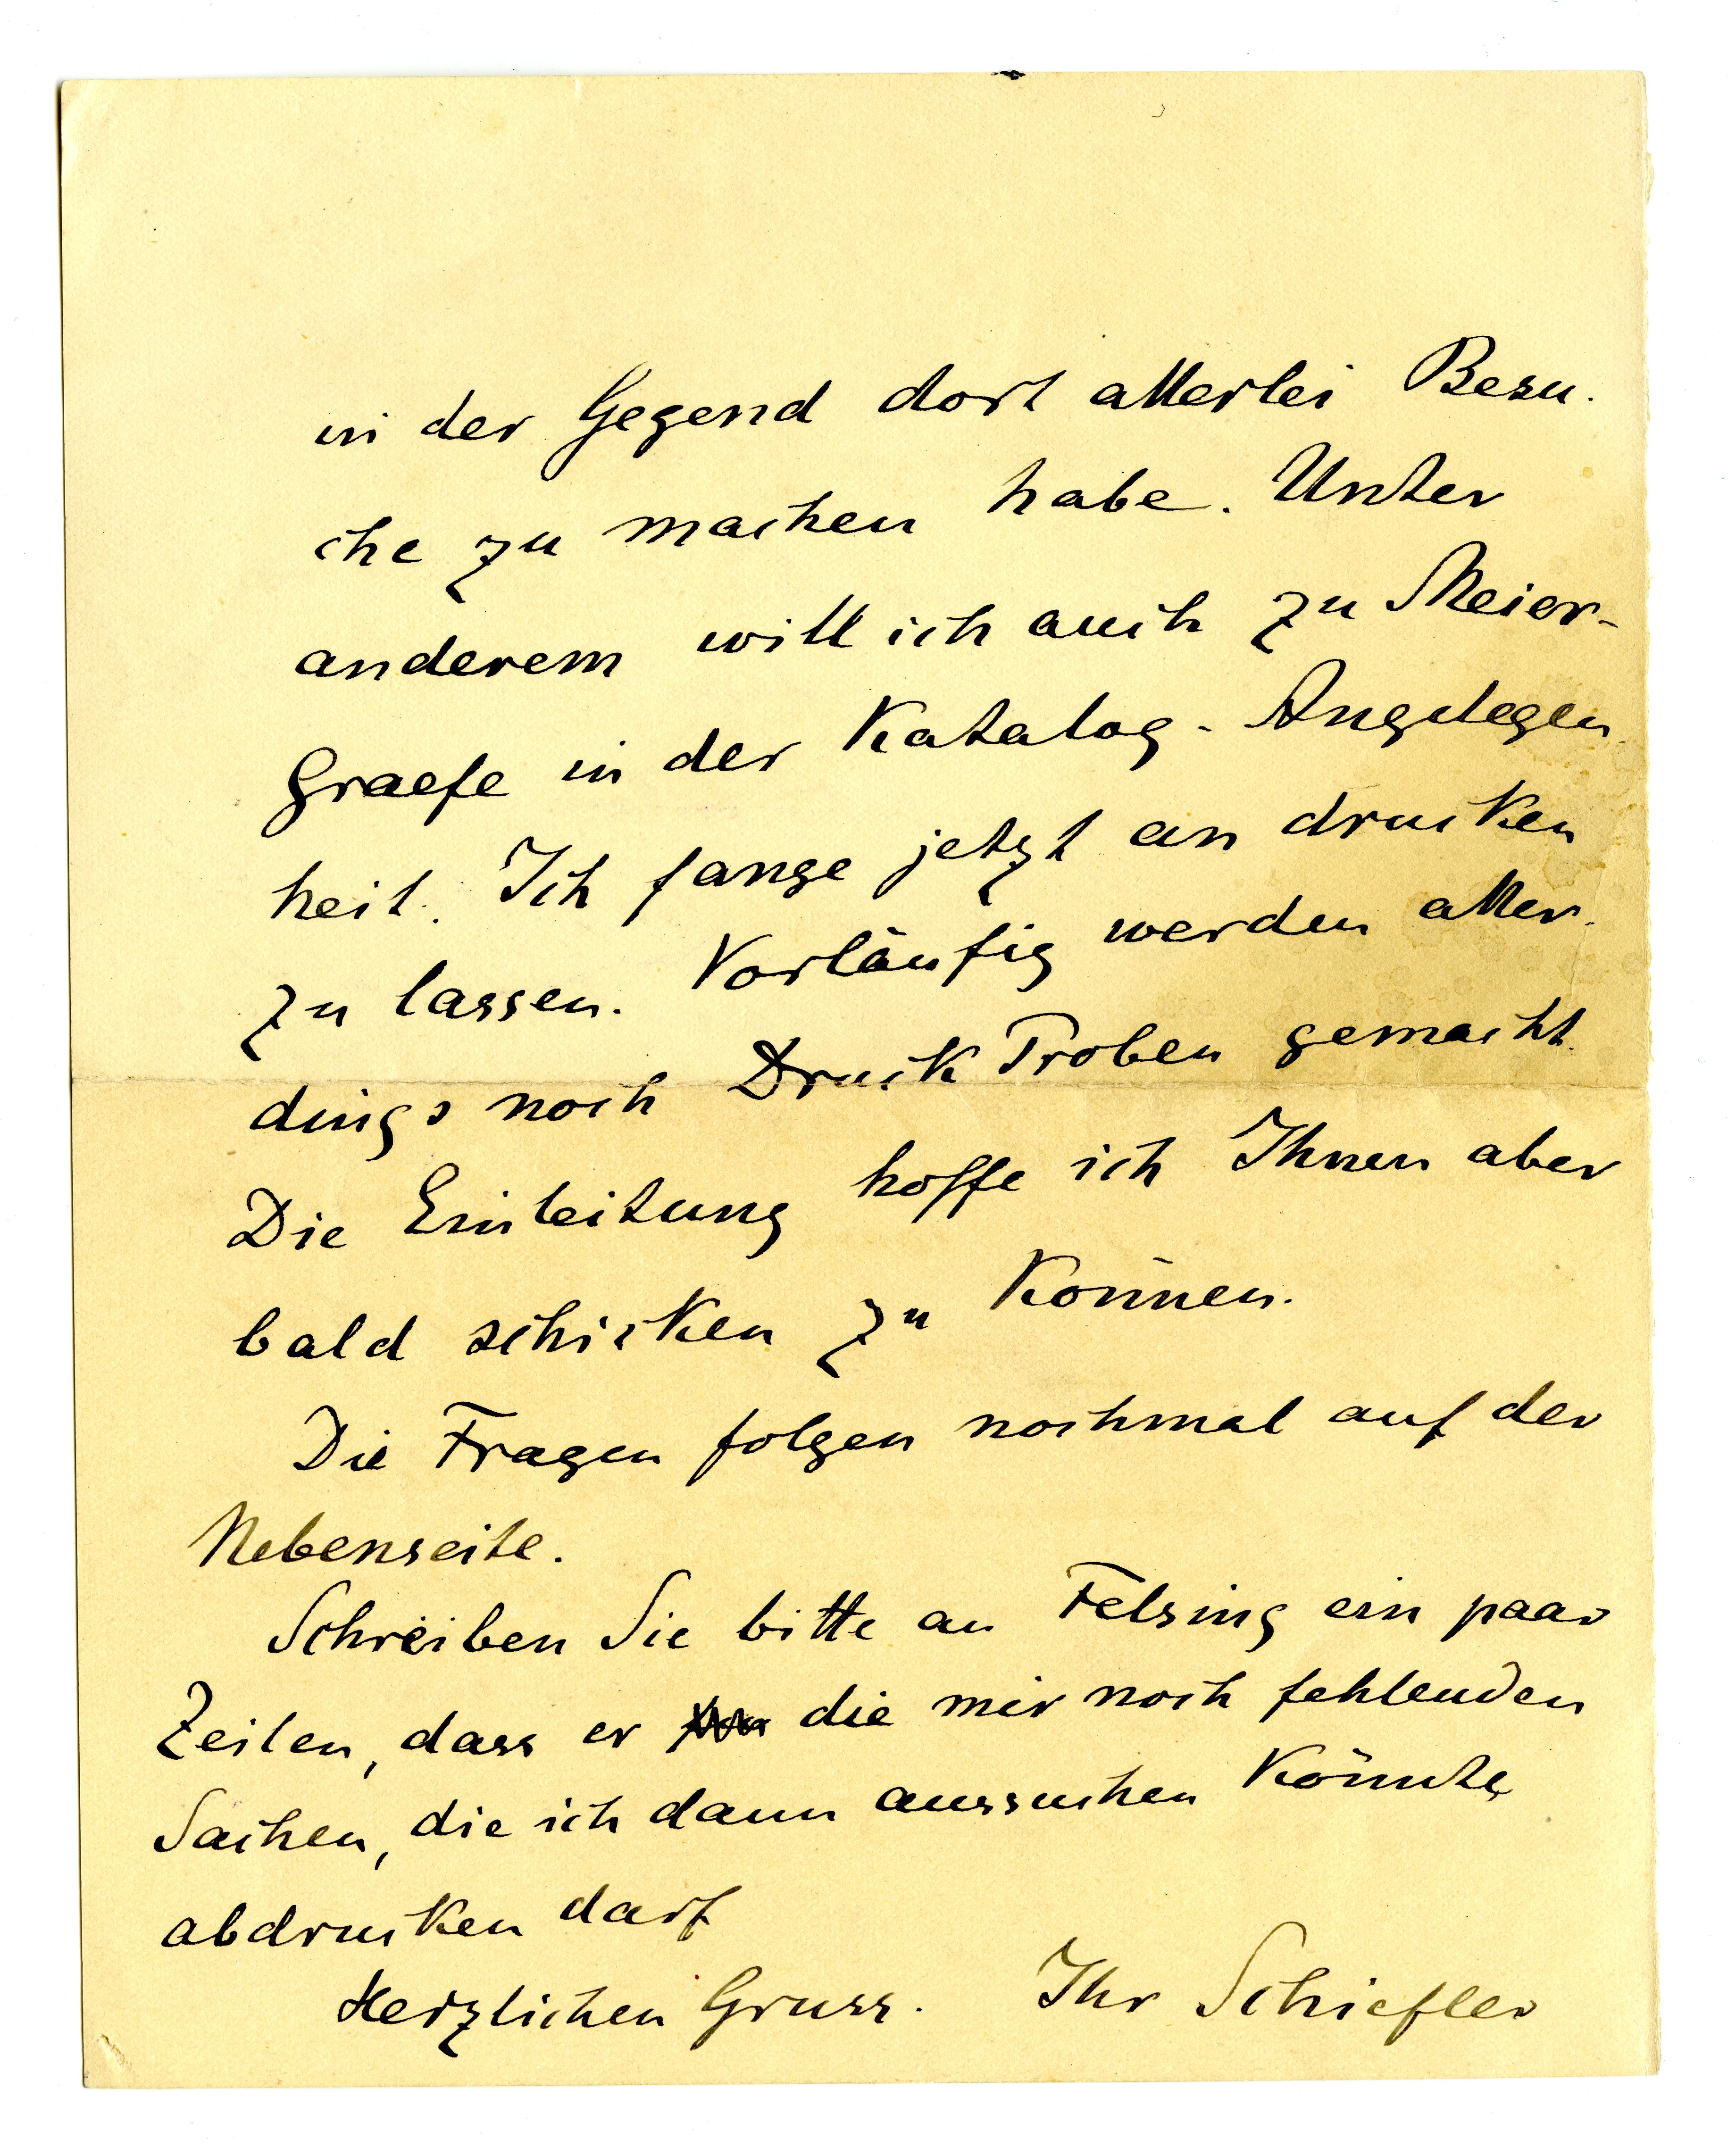 in der Gegend dort allerlei Besu-
che zu machen habe. Unter
anderem will ich auch zu Meier-
Graefe in der Katalog-Angelegen
heit. Ich fange jetzt an drucken
zu lassen. Vorläufig werden aller-
dings noch Druck Proben gemacht.
Die Einleitung hoffe ich Ihnen aber
bald schicken zu können.
Die Fragen folgen nochmal auf der
Nebenseite.
Schreiben Sie bitte an Felsing ein paar
Zeilen, dass er die mir noch fehlenden
Sachen, die ich dann aussuchen könnte,
abdrucken darf
Herzlichen Gruss. Ihr Schiefler